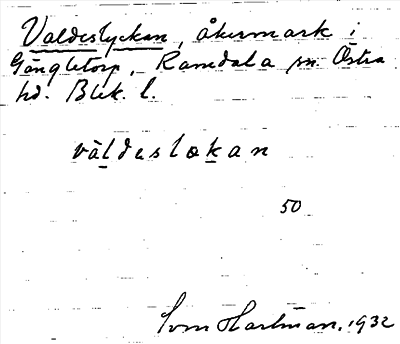 Valdeslyckan, åkermark i
Gängletorp, Ramdala sn. Östra
hd. Blek. l.
väldesløkan
50
Sven Hartman. 1932